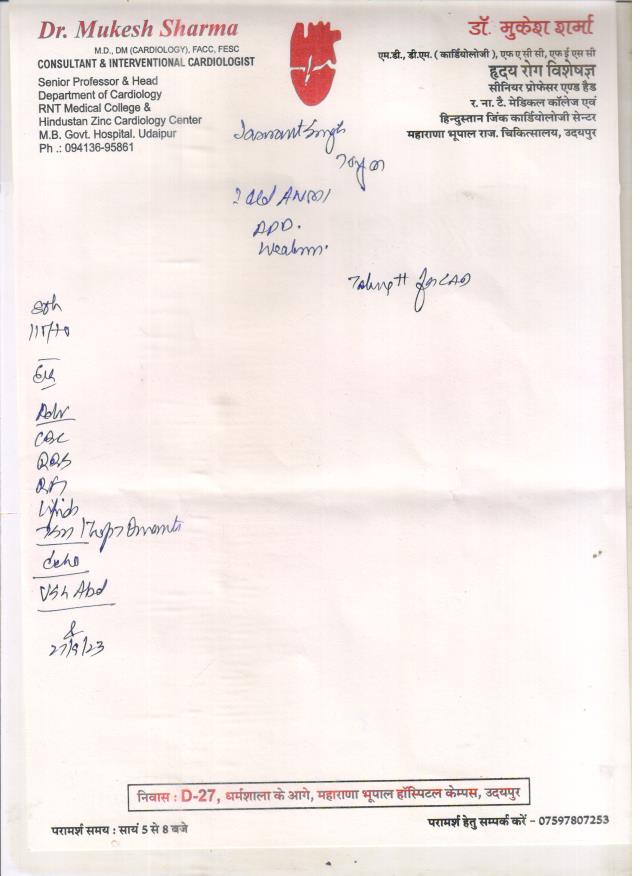 Dr. Mukesh Sharma
M.D., DM (CARDIOLOGY), FACC, FESC
CONSULTANT & INTERVENTIONAL CARDIOLOGIST
Senior Professor & Head
Department of Cardiology
RNT Medical College &
Hindustan Zinc Cardiology Center
M.B. Govt. Hospital. Udaipur
Ph .: 094136-95861
डॉ. मुकेश शर्मा
एम.डी., डी.एम. ( कार्डियोलोजी ), एफ ए सी सी, एफ ई एस सी
हृदय रोग विशेषज्ञ
सीनियर प्रोफेसर एण्ड हैड
र. ना. टै. मेडिकल कॉलेज एवं
हिन्दुस्तान जिंक कार्डियोलोजी सेन्टर
महाराणा भूपाल राज. चिकित्सालय, उदयपुर
Jaswant Singh
old
for CAD
Adv
CBC
RBS
RFT
Lipids
Echo
USG Abd
27/9/23
निवास : D-27, धर्मशाला के आगे, महाराणा भूपाल हॉस्पिटल केम्पस, उदयपुर
परामर्श समय : सायं 5 से 8 बजे
परामर्श हेतु सम्पर्क करें - 07597807253